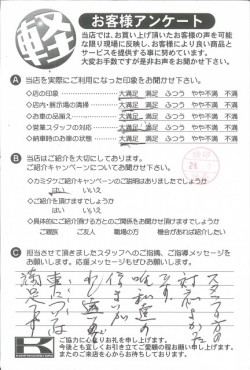 軽
お客様アンケート
当店では、お買い上げ頂いたお客様の声を可能
な限り現場に反映し、お客様により良い商品と
サービスを提供する事に努めています。
大変お手数ですが是非お声をお聞かせ下さい。
A 当店を実際にご利用になった印象をお聞かせ下さい。
◇店の印象 大満足 満足 ふつう やや不満 不満
◇店内・展示場の清掃 大満足 満足 ふつう やや不満 不満
◇お車の品揃え 大満足 満足 ふつう やや不満 不満
◇営業スタッフの対応 大満足 満足 ふつう やや不満 不満
◇納車時のお車の状態 大満足 満足 ふつう やや不満 不満
B 当店はご紹介を大切にしております。
ご紹介キャンペーンについてお聞かせ下さい。
◇カミタケご紹介キャンペーンのご説明はありましたでしょうか
はい いいえ
◇ご紹介キャンペーンに魅力はありますでしょうか
はい いいえ
◇具体的にご紹介頂ける方とのご関係をお聞かせ頂けますでしょうか
ご親戚 ご友人 職場の方 機会があれば紹介したい
C 担当させて頂きましたスタッフへのご指摘、ご指導メッセージを
お願いします。応援メッセージもぜひお願いします。
スタッフの方の
対応がよかった
満足です
K
ご協力に心よりお礼を申し上げます。
今後とも宜しくお引き立てご愛顧の程お願い申し上げます。
またのご来店を心からお待ちしております。